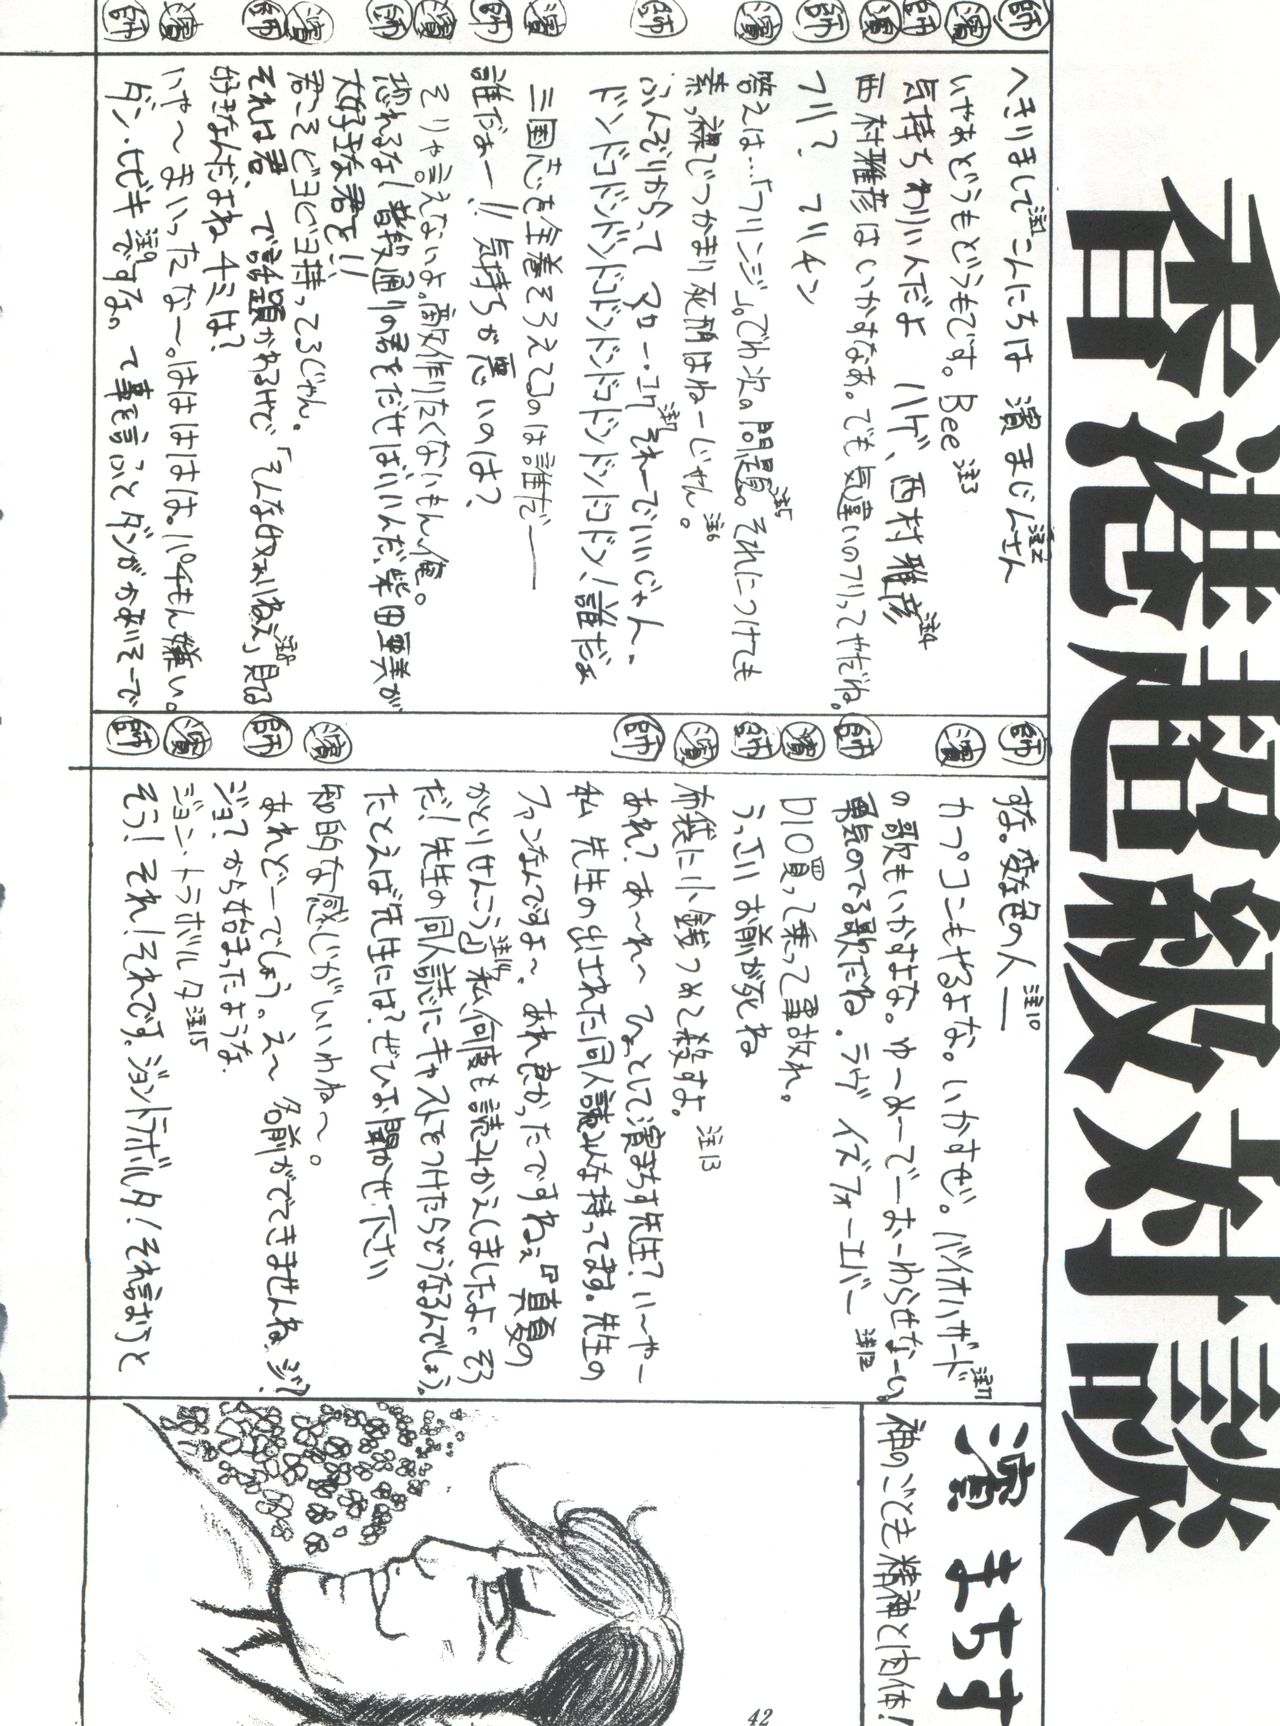 香港超級対談
師 へきりまして注1こんにちは 濱まじんさん注2
濱 いやあどうもどうもです。Bee注3
師 気持ちわりいんだよ ハゲ、西村雅彦注4
濱 西村雅彦はいかすなあ。でも気違いのフリってやだね。
師 フリ? フリチン
濱 答えは…「フリンジ」。でわ次の問題。注5それにつけても
素っ裸でつかまり死刑はねーじゃん。注6
師 ふんぞりかえって マロー・コワ注7それーでいいじゃん、
ドンドコドンドンドコドンドンドコドンドンドコドン!誰だぁ
濱 三国志を全巻そろえてるのは誰だー
師 誰だぁー!!気持ちが悪いのは?
濱 そりゃ言えないよ。敵作りたくないもん、俺。
師 恐れるな!普段通りの君をだせばいいんだ、柴田亜美が
大好きな君を!!
濱 君こそビヨビヨ持ってるじゃん。
師 それは君、で話題かわるけど「そんな奴ぁいねえ」注8見てる
好きなんだよね、チミは?
濱 いや〜まいったな〜。はははは。パチもん嫌い。
師 ダン・ヒビキ注9ですな。って事を言ふとダンがかわいそーで
すな。変な色の人ー注10
濱 カプコンもやるよな。いかすぜ。バイオハザード注11
の歌もいかすよな。ゆーめーでーおーわらせなーい
師 勇気のでる歌だね。ラヴ イズ フォーエバー注12
濱 DIO買って乗って事故れ。
師 うっさい お前が死ね
濱 布袋に小銭つめて殺すよ。注13
師 あれ?あ〜れ〜 ひょっとして濱まちす先生?い〜や〜
私 先生の出された同人誌みんな持ってます。先生の
ファンなんですよ〜。あれ良かったですねぇ『真夏の
かとりせんこう』注14私、何度も読みかえしましたよ。そう
だ!先生の同人誌にキャストをつけたらどうなるんでしょう。
たとえば先生には?ぜひお聞かせ下さい
濱 知的な感じがいいわね〜。
師 あれどーでしょう。え〜 名前がでてきませんね、ジ?
ジョ?から始まったような
濱 ジョン・トラボルタ注15
師 そう!それ!それです。ジョントラボルタ!それ言おうと
濱 まちす
神のごとき精神と肉体!
42